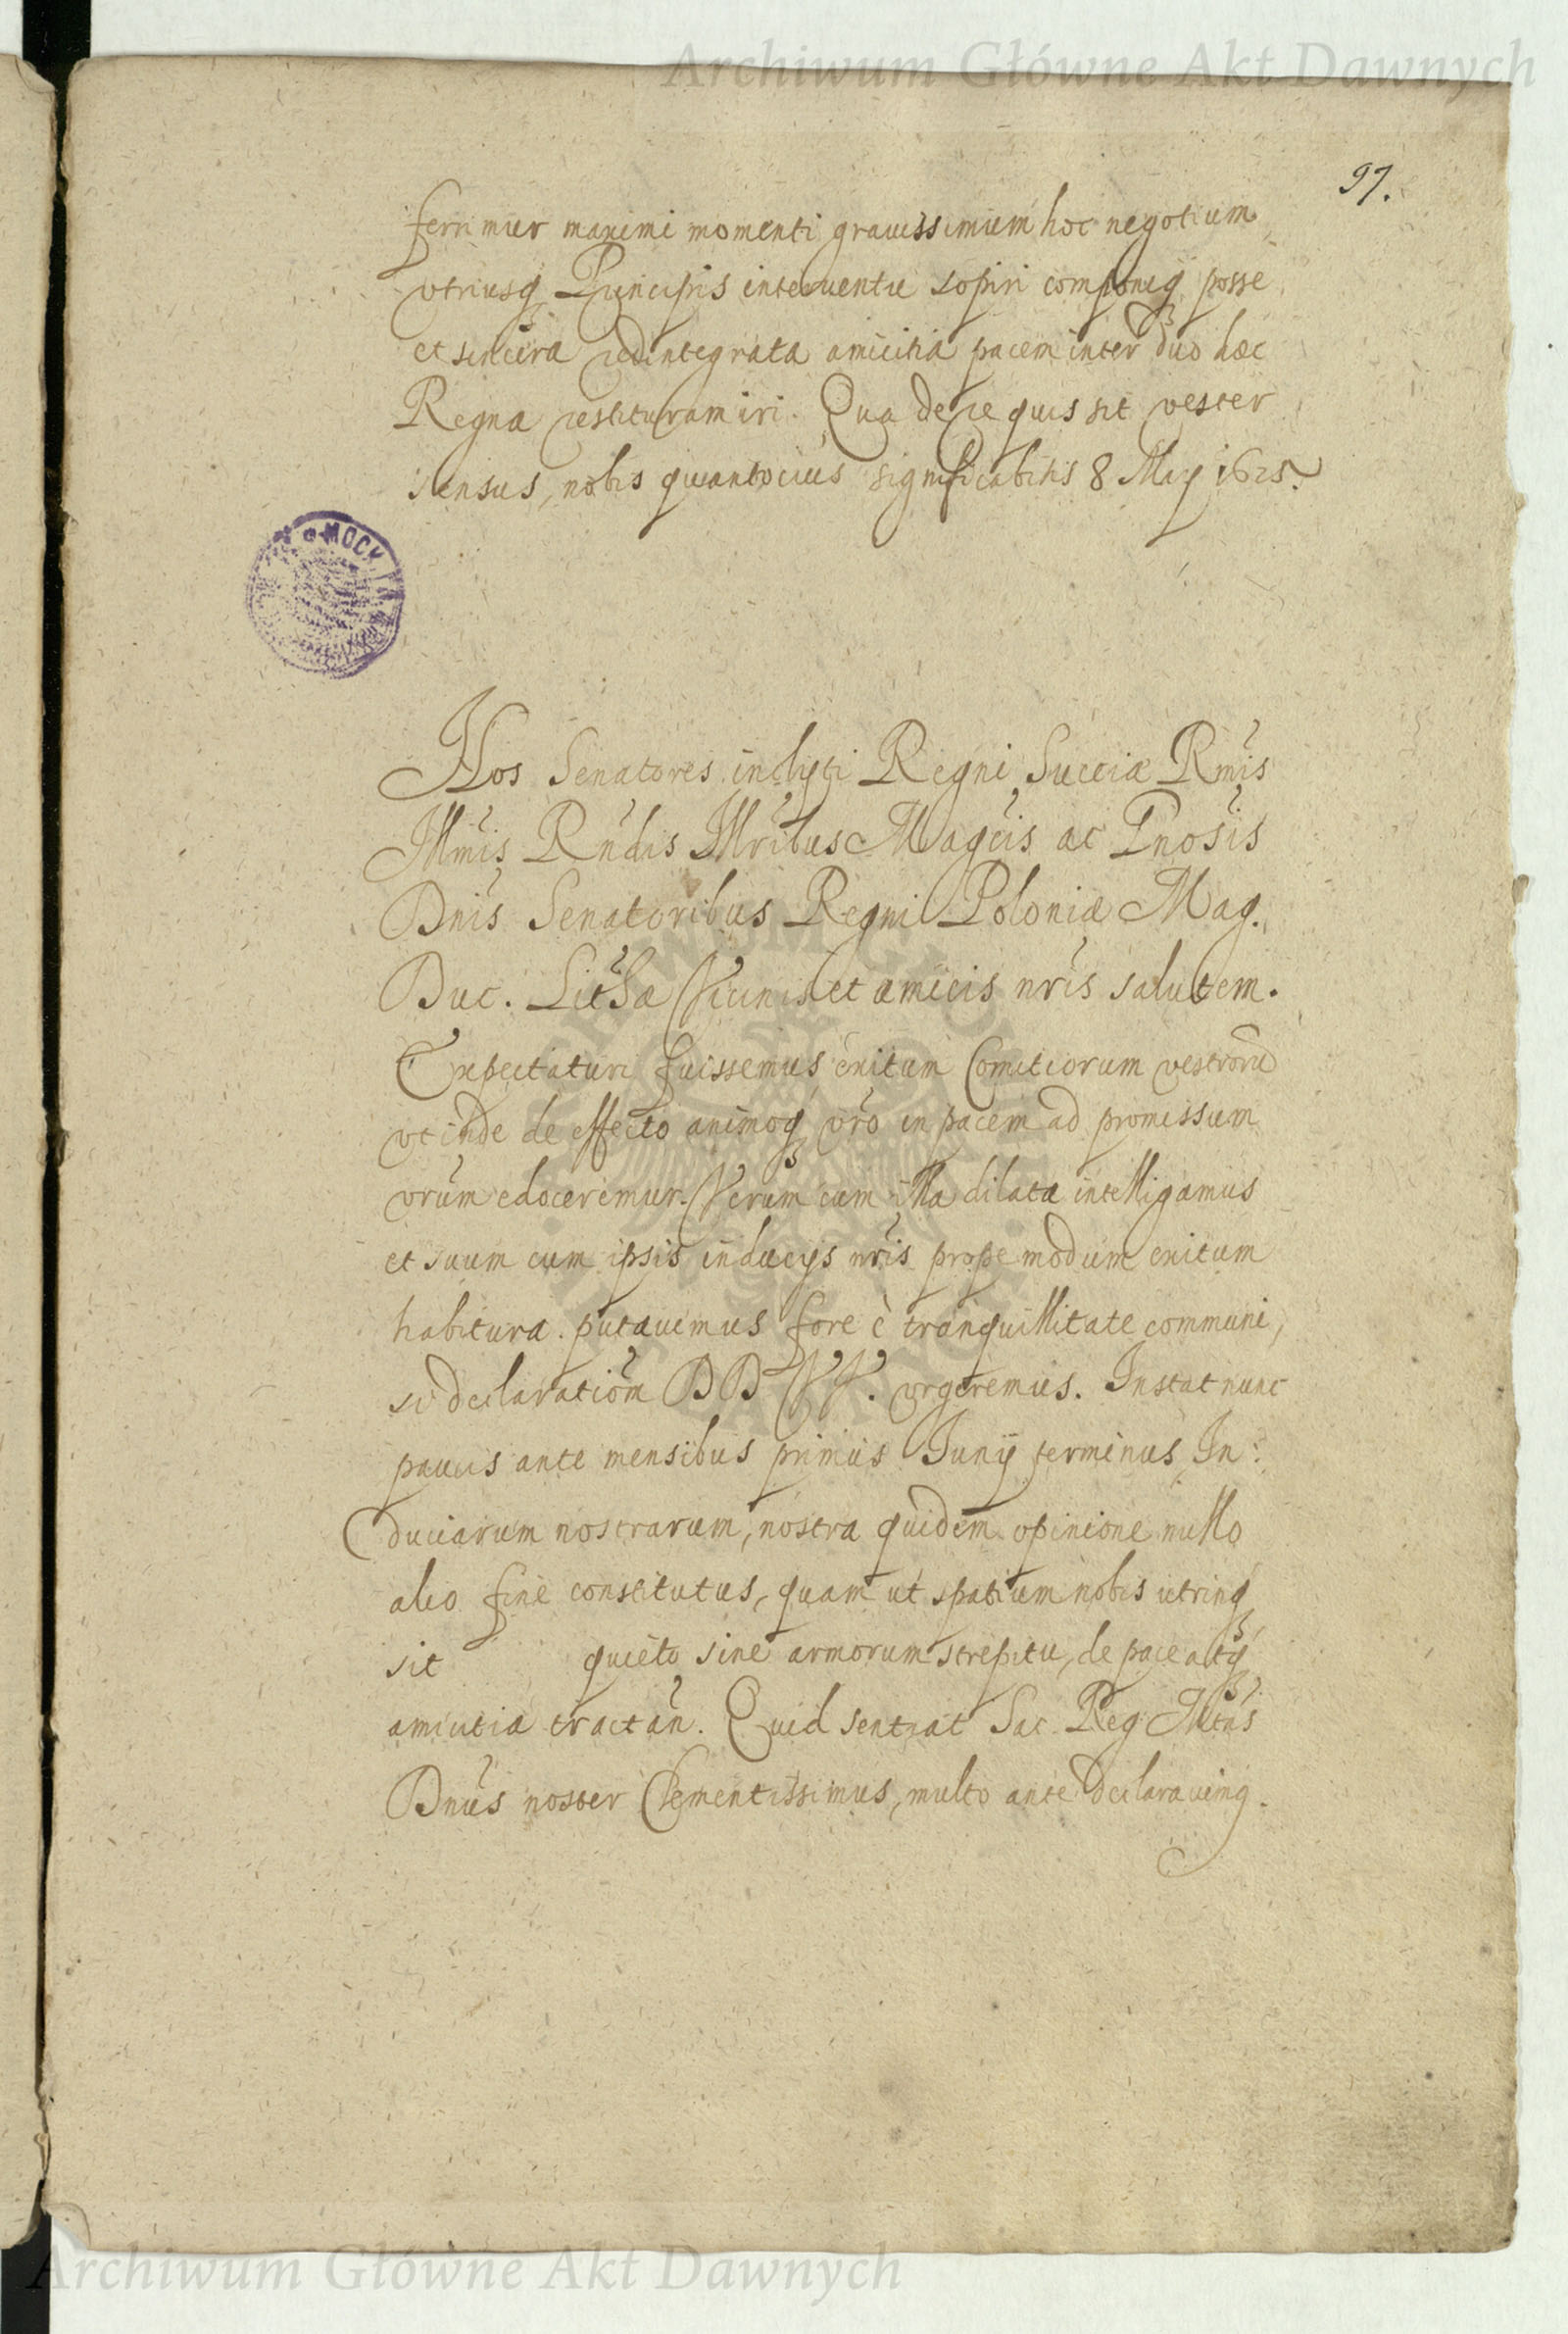 Archiwum Główne Akt Dawnych
97.
ferimur maximi momenti gravissimum hoc negotium
utriusq Principis interventu sopiri componiq posse
et sincera redintegrata amicitia pacem inter duo hæc
Regna restituram iri. Qua de re quis sit vester
sensus, nobis quantocius significabitis 8 Maÿ 1625.
MOCK
Nos Senatores inclyti Regni Sueciæ Rmis
Illmis Rndis Illribus Magcis ac Gnosis
Dnis Senatoribus Regni Poloniæ Mag.
Duc. Lithæ Vicinis et amicis nris salutem.
Expectaturi fuissemus exitum Comitiorum vestroru
ut inde de effecto animoq vro in pacem ad promissum
vrum edoceremur. Verum cum illa dilata intelligamus
et suum cum ipsis inducijs nris prope modum exitum
habitura. putavimus fore è tranquillitate communi,
si declaratiom DD VV. urgeremus. Instat nunc
paucis ante mensibus primus Junÿ terminus In:
duciarum nostrarum, nostra quidem opinione nullo
alio fine constitutus, quam ut spatium nobis utrinq
sit quieto sine armorum strepitu, de pace atq
amicitia tractan. Quid sentiat Sac. Reg Mtas
Dnus noster Clementissimus, multo ante declaravimq.
Archiwum Główne Akt Dawnych